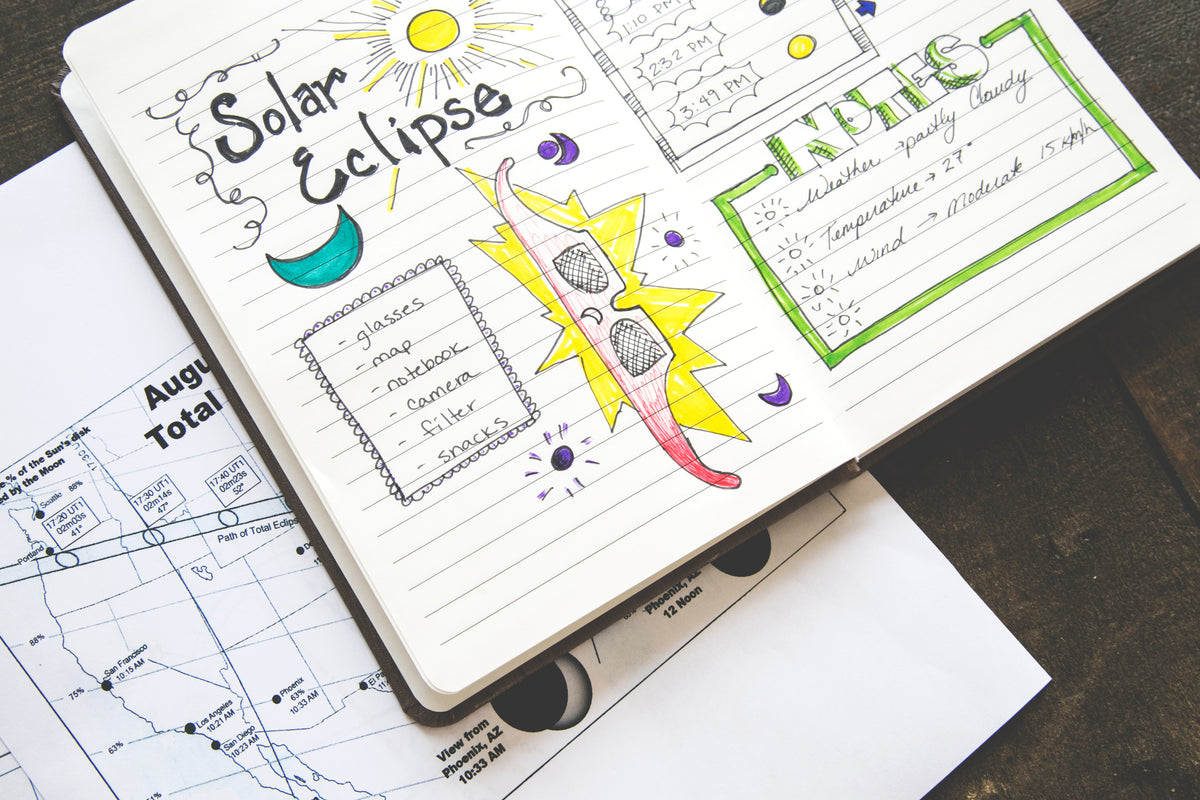 Solar
Eclipse
- glasses
- map
- notebook
- camera
- filter
- snacks
1:10 PM
2:32 PM
3:49 PM
NOTES
Weather → partly Cloudy
Temperature → 27°
Wind → Moderate 15 km/h
Augu
Total
% of the Sun's disk
ed by the Moon
Seattle 88%
17:20 UT1
02m03s
41°
17:30 UT1
02m14s
47°
17:40 UT1
02m23s
52°
Portland
Path of Total Eclips
88%
75%
63%
San Francisco
10:15 AM
Los Angeles
10:21 AM
San Diego
10:23 AM
Phoenix
63%
10:33 AM
El Pa
View from
Phoenix, AZ
10:33 AM
Phoenix, AZ
12 Noon